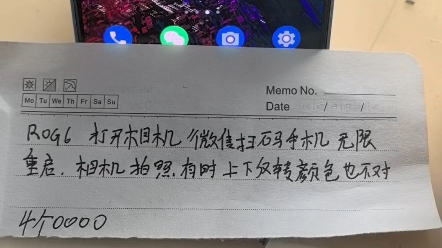 Memo No.
Mo Tu We Th Fr Sa Su
Date
ROG6 打开相机/微信扫码手机无限
重启.相机拍照.有时上下反转颜色也不对
4个0000